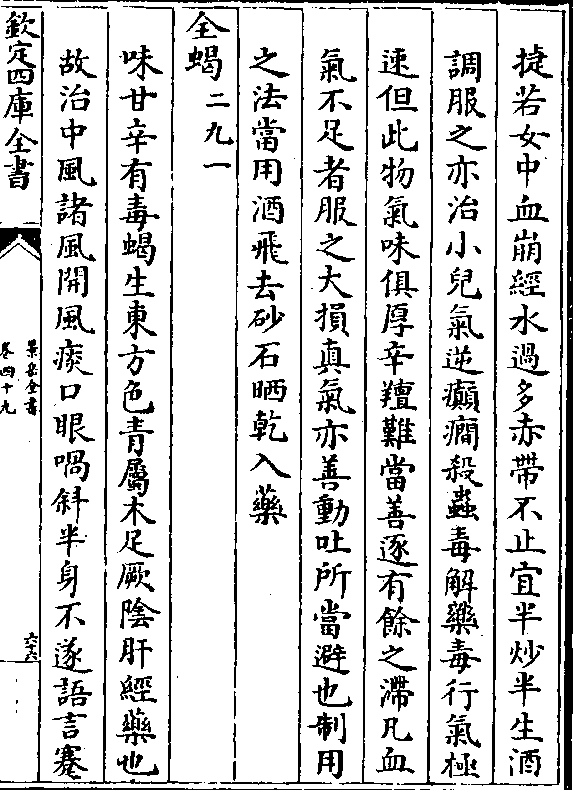 捷若女中血崩經水過多赤帶不止宜半炒半生酒
調服之亦治小兒氣逆癲癇殺蟲毒解藥毒行氣極
速但此物氣味俱厚辛羶難當善逐有餘之滯凡血
氣不足者服之大損真氣亦善動吐所當避也制用
之法當用酒飛去砂石晒乾入藥
全蝎二九一
味甘辛有毒蝎生東方色青屬木足厥陰肝經藥也
故治中風諸風開風痰口眼喎斜半身不遂語言蹇
欽定四庫全書
景岳全書
卷四十九
六十六